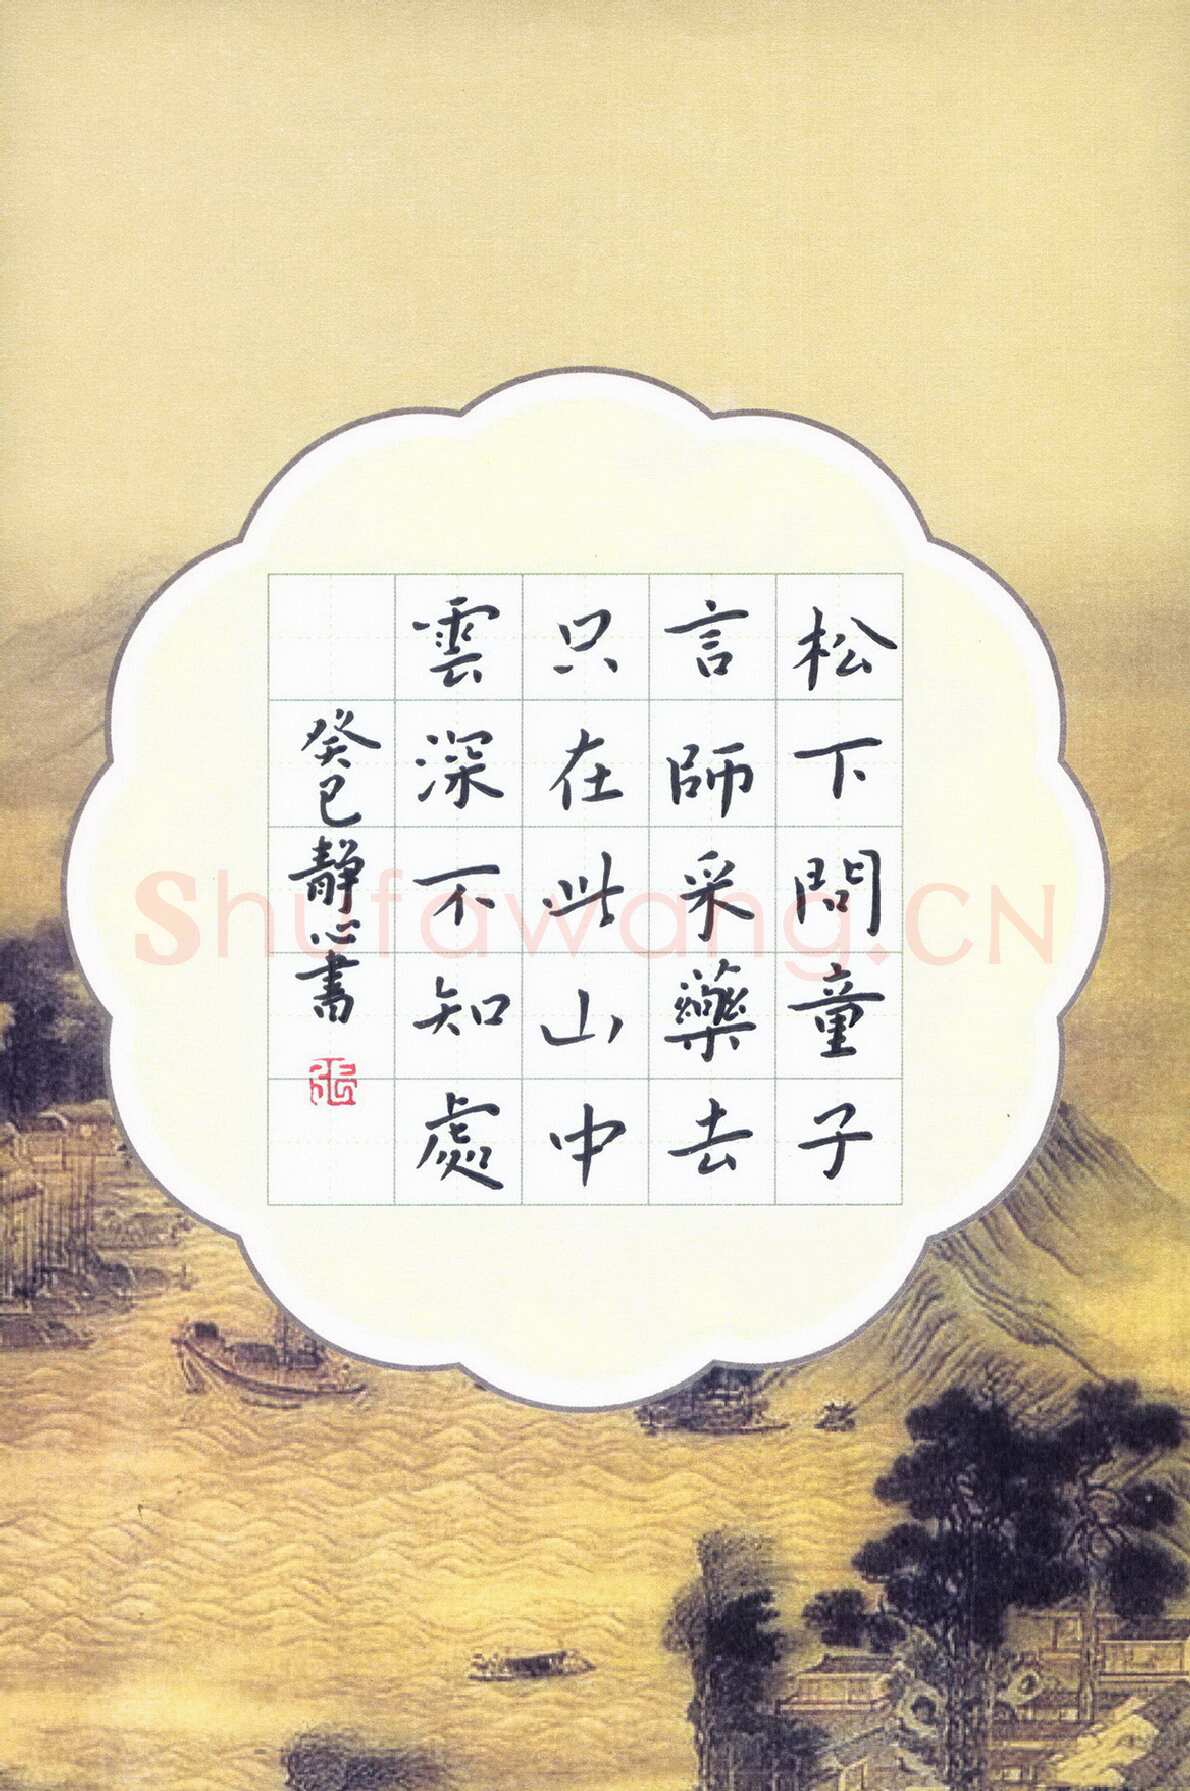 松下問童子
言師采藥去
只在此山中
雲深不知處
癸巳靜心書
Shufawang.CN